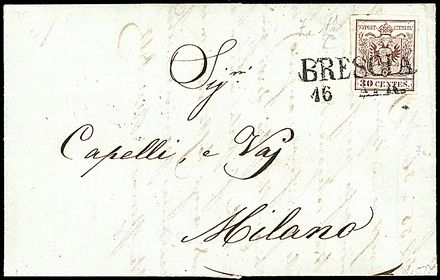 KKPOST-STEMPEL
30 CENTES.
BRESCIA
16
Sig.ri
Capelli, e Vaj
Milano